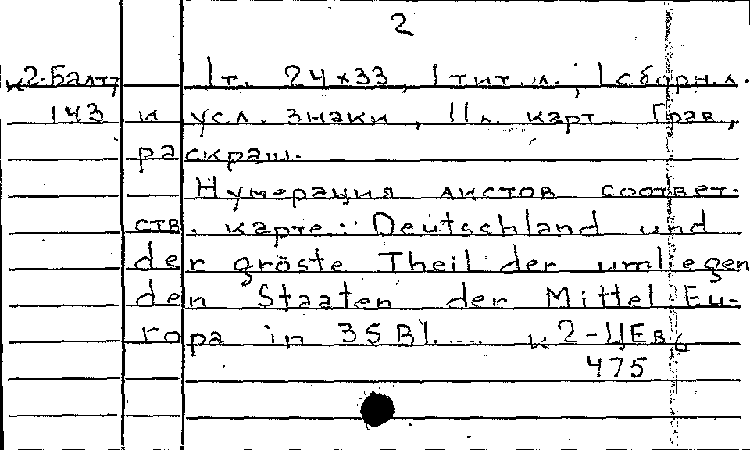 2
к2-Балт 1т. 24×33, 1 тит. л., 1 сборн. л.
143 и усл. знаки, 11 л. карт. Грав,
раскраш.
Нумерация листов соответ-
ств. карте: Deutschland und
der gröste Theil der umliegen
den Staaten der Mittel Eu-
ropa in 35 Bl. ... к 2-ЦЕв
475